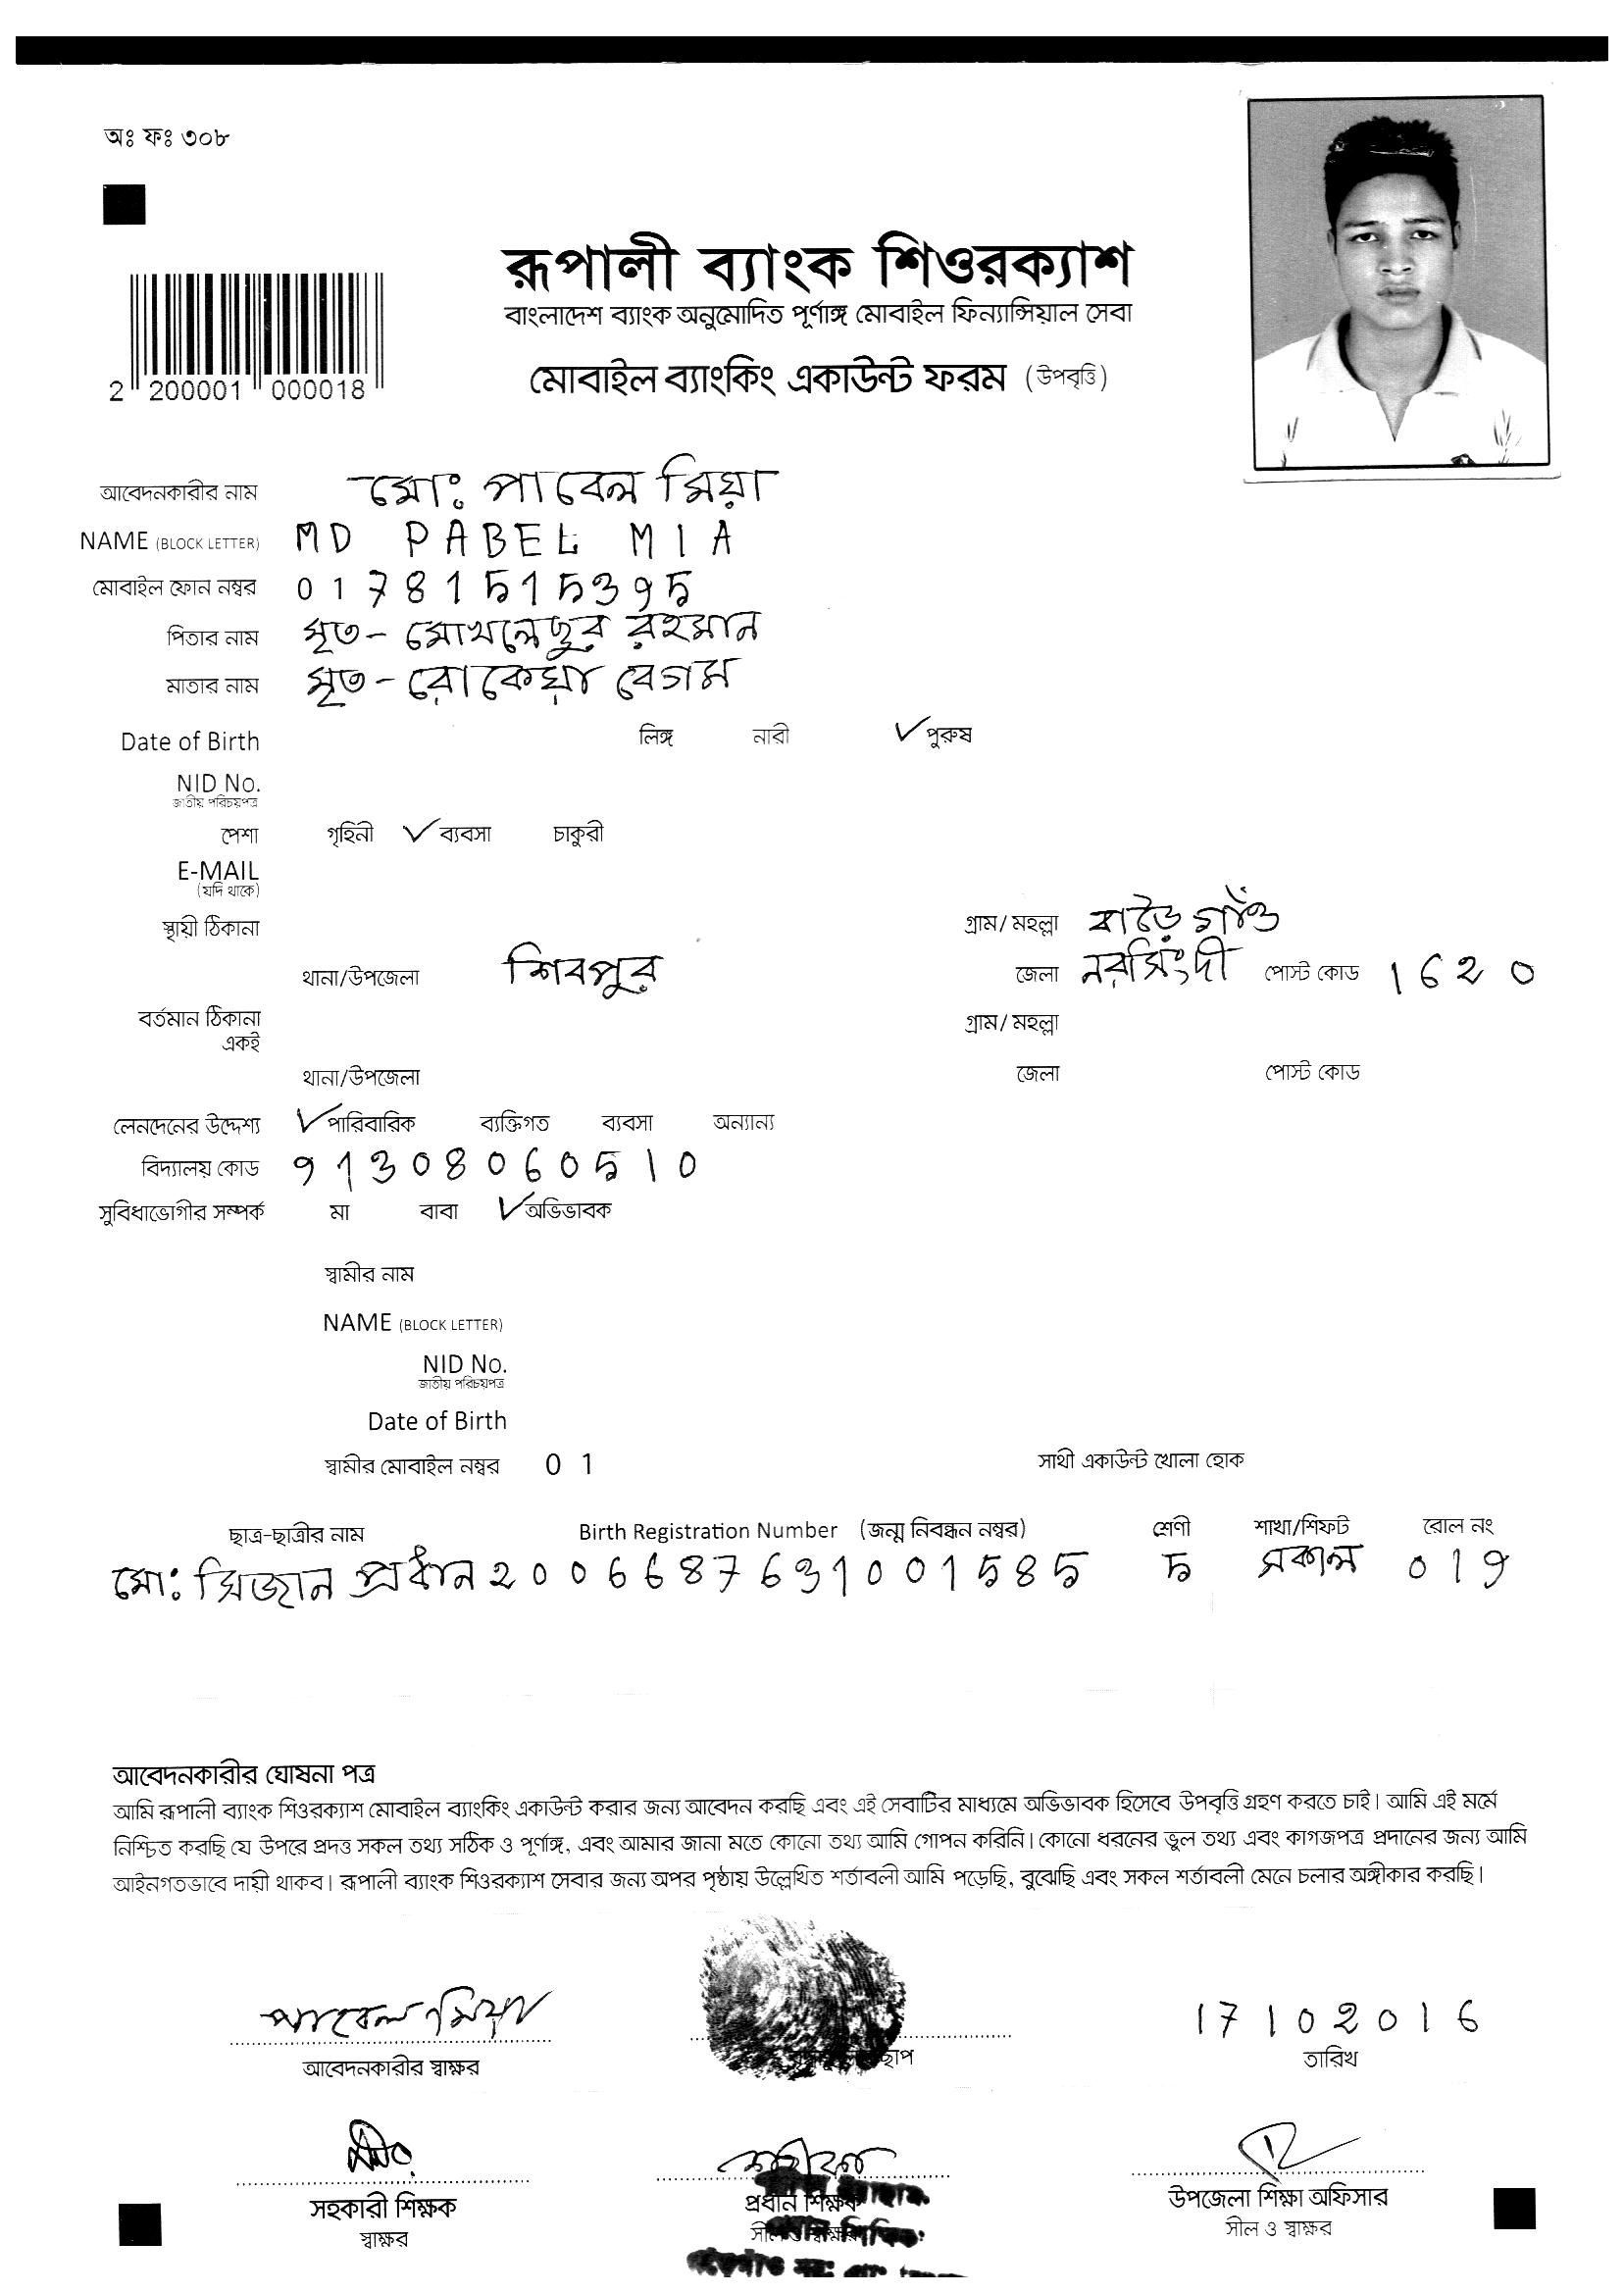 অঃ ফঃ ৩০৮
রূপালী ব্যাংক শিওরক্যাশ
বাংলাদেশ ব্যাংক অনুমোদিত পূর্ণাঙ্গ মোবাইল ফিন্যান্সিয়াল সেবা
2 200001 000018
মোবাইল ব্যাংকিং একাউন্ট ফরম (উপবৃত্তি)
আবেদনকারীর নাম মোঃ পাবেল মিয়া
NAME (BLOCK LETTER) MD PABEL MIA
মোবাইল ফোন নম্বর 01781515395
পিতার নাম মৃত - মোখলেছুর রহমান
মাতার নাম মৃত - রোকেয়া বেগম
Date of Birth লিঙ্গ নারী ✓ পুরুষ
NID No.
জাতীয় পরিচয়পত্র
পেশা গৃহিনী ✓ ব্যবসা চাকুরী
E-MAIL
(যদি থাকে)
স্থায়ী ঠিকানা গ্রাম/ মহল্লা বাড়ৈগাঁও
থানা/উপজেলা শিবপুর জেলা নরসিংদী পোস্ট কোড 1620
বর্তমান ঠিকানা গ্রাম/ মহল্লা
একই
থানা/উপজেলা জেলা পোস্ট কোড
লেনদেনের উদ্দেশ্য ✓ পারিবারিক ব্যক্তিগত ব্যবসা অন্যান্য
বিদ্যালয় কোড 91308060510
সুবিধাভোগীর সম্পর্ক মা বাবা ✓ অভিভাবক
স্বামীর নাম
NAME (BLOCK LETTER)
NID No.
জাতীয় পরিচয়পত্র
Date of Birth
স্বামীর মোবাইল নম্বর 0 1 সাথী একাউন্ট খোলা হোক
ছাত্র-ছাত্রীর নাম Birth Registration Number (জন্ম নিবন্ধন নম্বর) শ্রেণী শাখা/শিফট রোল নং
মোঃ মিজান প্রধান 2006687631001585 5 সকাল 019
আবেদনকারীর ঘোষনা পত্র
আমি রূপালী ব্যাংক শিওরক্যাশ মোবাইল ব্যাংকিং একাউন্ট করার জন্য আবেদন করছি এবং এই সেবাটির মাধ্যমে অভিভাবক হিসেবে উপবৃত্তি গ্রহণ করতে চাই। আমি এই মর্মে
নিশ্চিত করছি যে উপরে প্রদত্ত সকল তথ্য সঠিক ও পূর্ণাঙ্গ, এবং আমার জানা মতে কোনো তথ্য আমি গোপন করিনি। কোনো ধরনের ভুল তথ্য এবং কাগজপত্র প্রদানের জন্য আমি
আইনগতভাবে দায়ী থাকব। রূপালী ব্যাংক শিওরক্যাশ সেবার জন্য অপর পৃষ্ঠায় উল্লেখিত শর্তাবলী আমি পড়েছি, বুঝেছি এবং সকল শর্তাবলী মেনে চলার অঙ্গীকার করছি।
পাবেল মিয়া 17102016
আবেদনকারীর স্বাক্ষর ছাপ তারিখ
সহকারী শিক্ষক প্রধান শিক্ষক উপজেলা শিক্ষা অফিসার
স্বাক্ষর সীল ও স্বাক্ষর সীল ও স্বাক্ষর